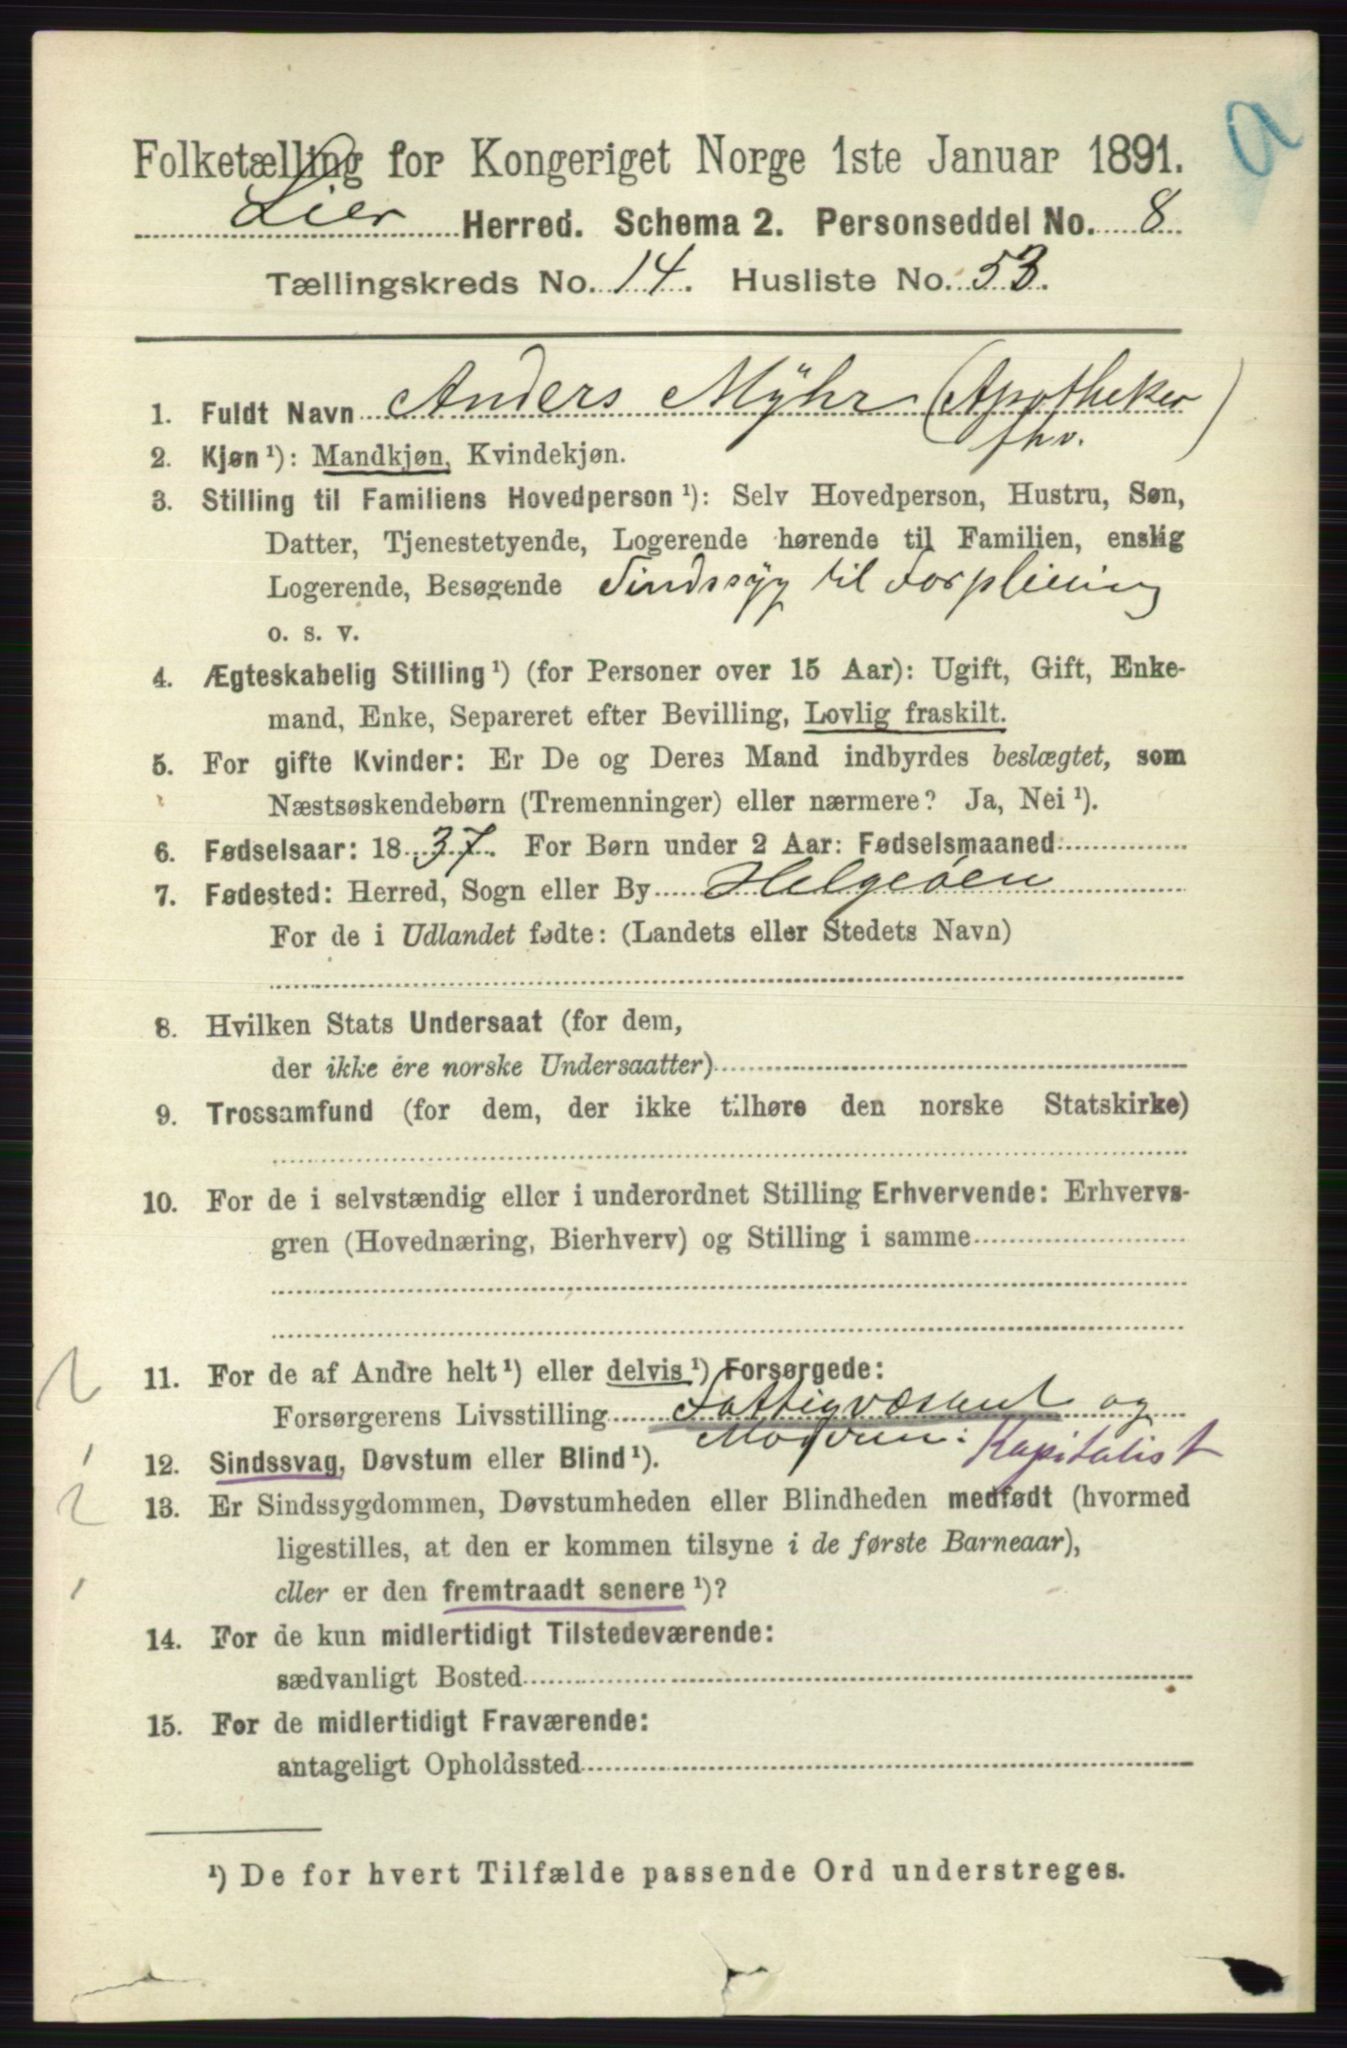 a
Folketælling for Kongeriget Norge 1ste Januar 1891.
Lier Herred. Schema 2. Personseddel No. 8
Tællingskreds No. 14. Husliste No. 53.
1. Fuldt Navn Anders Mÿhr (Apotheker
fhv. )
2. Kjøn ¹): Mandkjøn, Kvindekjøn.
3. Stilling til Familiens Hovedperson ¹): Selv Hovedperson, Hustru, Søn,
Datter, Tjenestetyende, Logerende hørende til Familien, enslig
Logerende, Besøgende Sindssyg til Forpleining
o. s. v.
4. Ægteskabelig Stilling ¹) (for Personer over 15 Aar): Ugift, Gift, Enke-
mand, Enke, Separeret efter Bevilling, Lovlig fraskilt.
5. For gifte Kvinder: Er De og Deres Mand indbyrdes beslægtet, som
Næstsøskendebørn (Tremenninger) eller nærmere? Ja, Nei ¹).
6. Fødselsaar: 18 37. For Børn under 2 Aar: Fødselsmaaned
7. Fødested: Herred, Sogn eller By Helgeöen
For de i Udlandet fødte: (Landets eller Stedets Navn)
8. Hvilken Stats Undersaat (for dem,
der ikke ere norske Undersaatter)
9. Trossamfund (for dem, der ikke tilhøre den norske Statskirke)
10. For de i selvstændig eller i underordnet Stilling Erhvervende: Erhvervs-
gren (Hovednæring, Bierhverv) og Stilling i samme
11. For de af Andre helt ¹) eller delvis ¹) Forsørgede:
Forsørgerens Livsstilling Fattigvæsenet og
Moderen: Kapitalist
12. Sindssvag, Døvstum eller Blind ¹).
13. Er Sindssygdommen, Døvstumheden eller Blindheden medfødt (hvormed
ligestilles, at den er kommen tilsyne i de første Barneaar),
eller er den fremtraadt senere ¹)?
14. For de kun midlertidigt Tilstedeværende:
sædvanligt Bosted
15. For de midlertidigt Fraværende:
antageligt Opholdssted
¹) De for hvert Tilfælde passende Ord understreges.